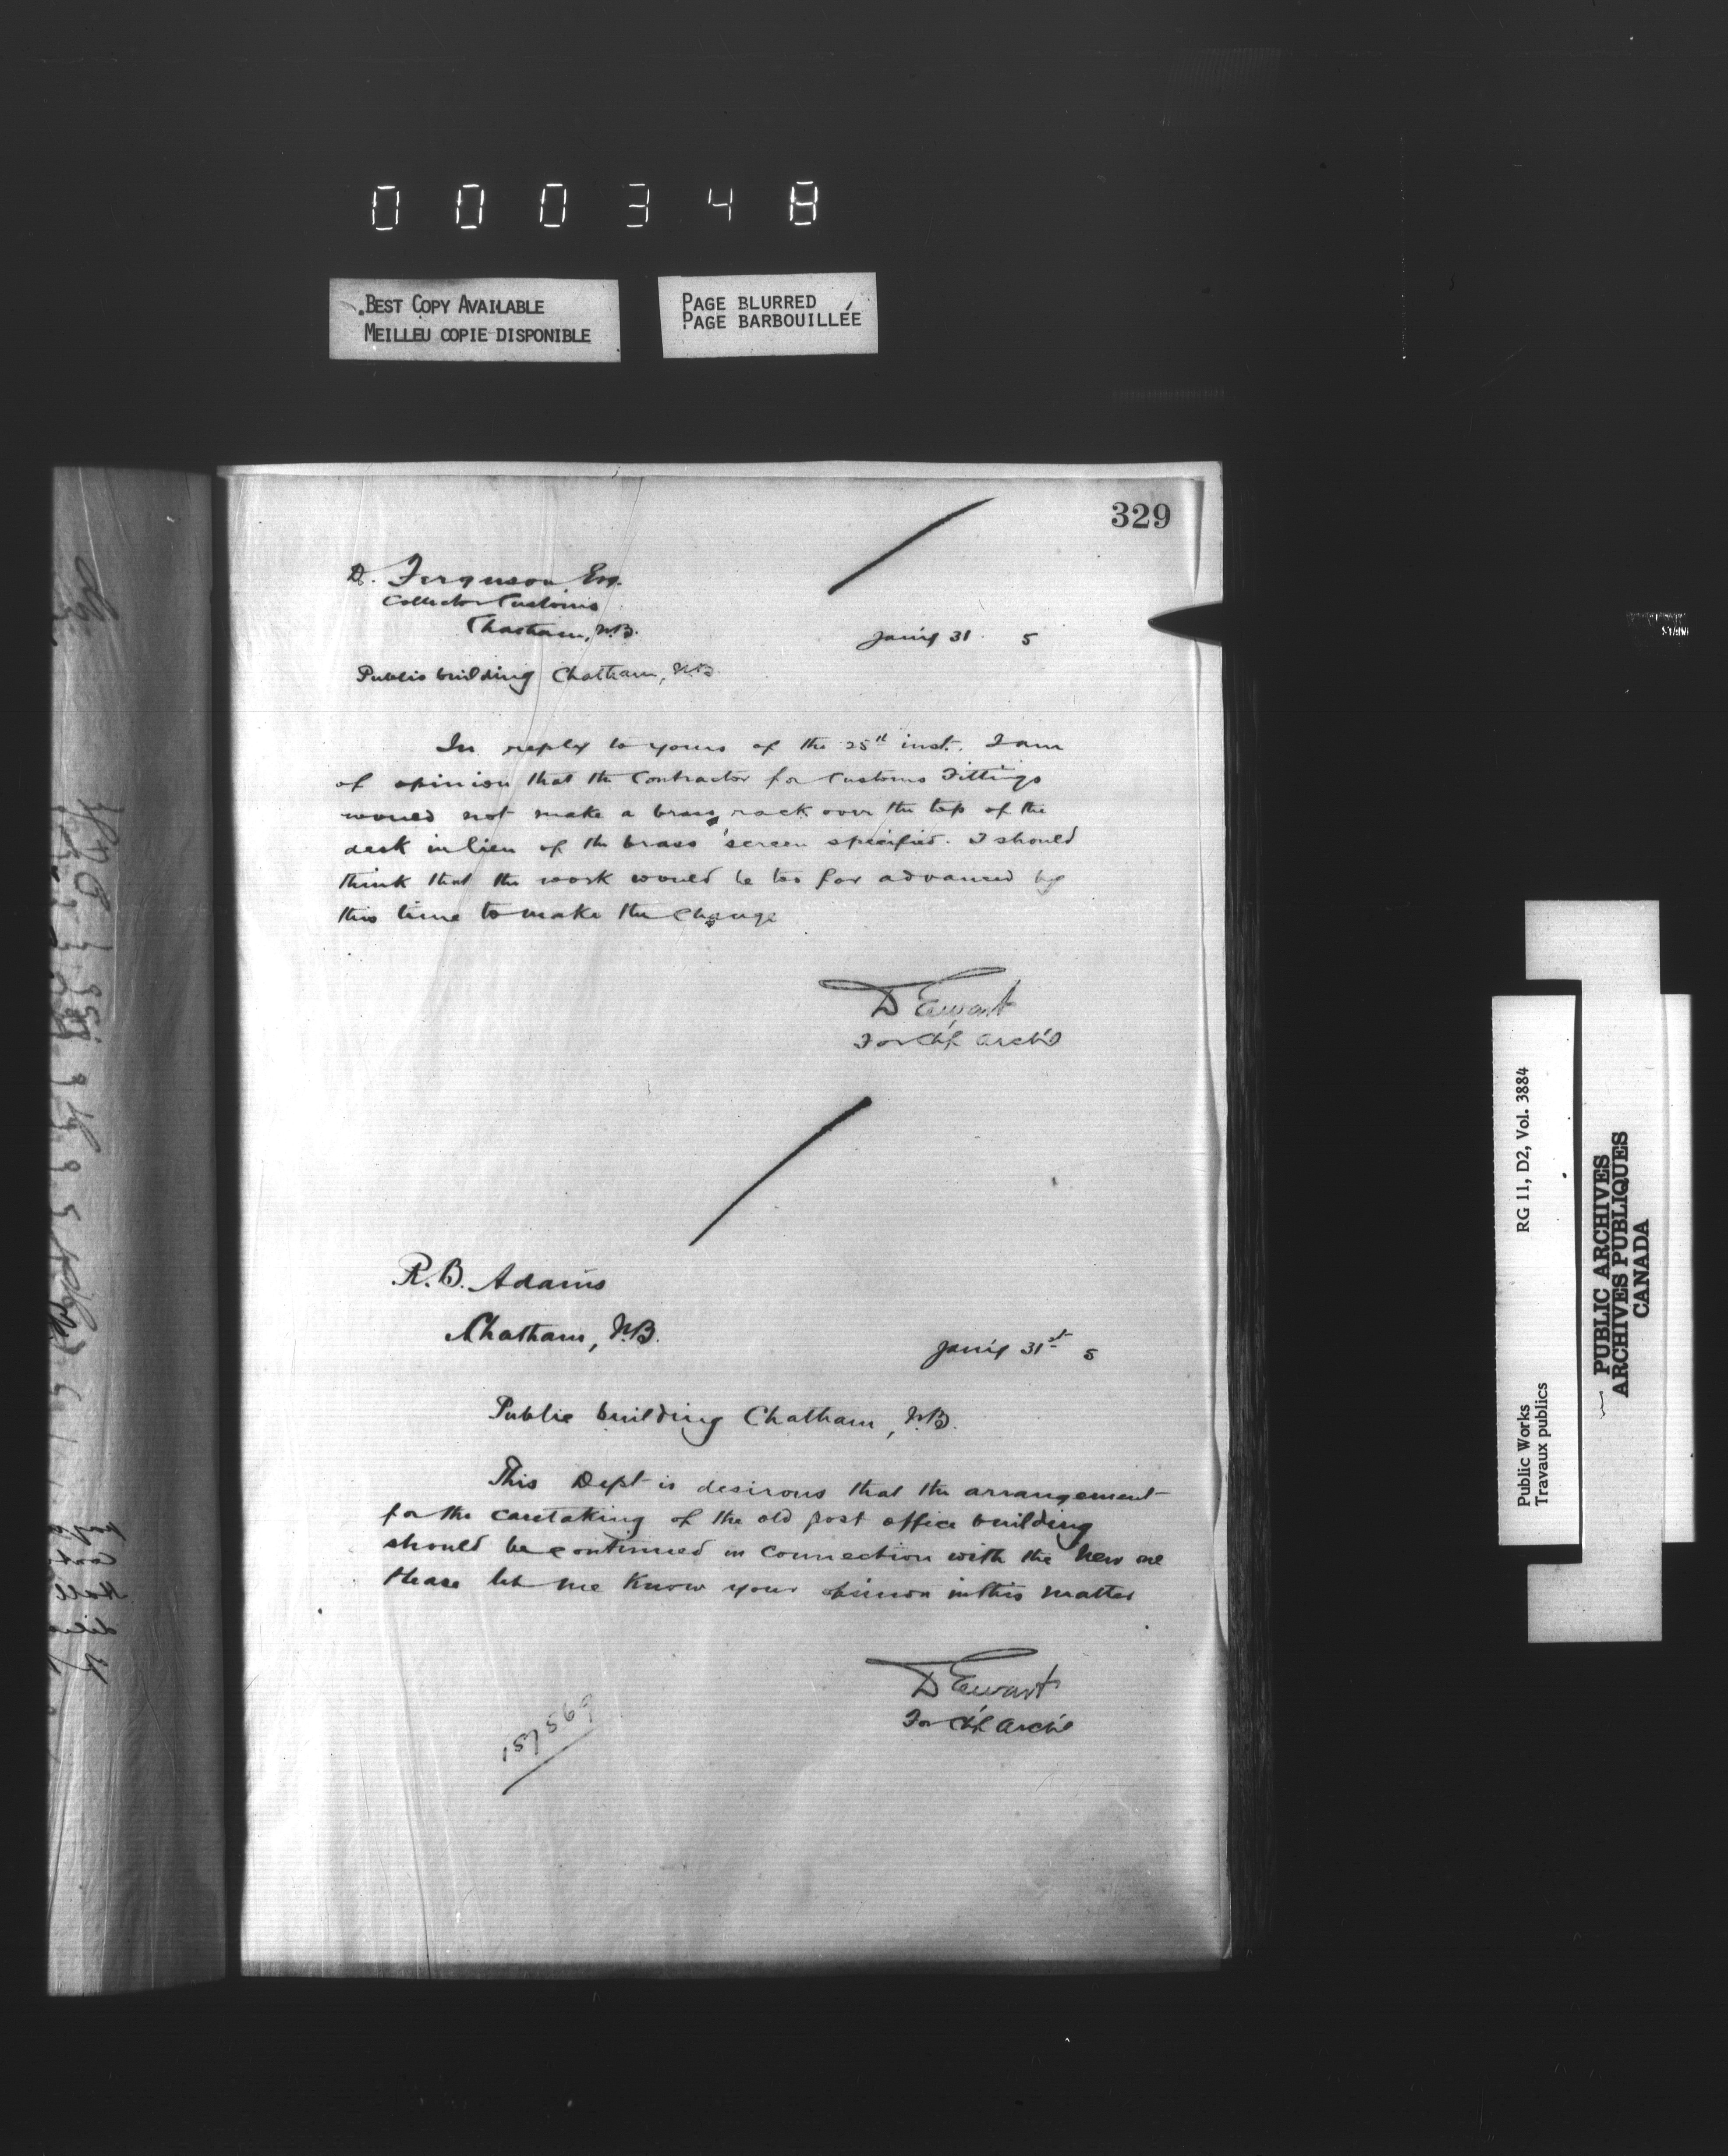 000348
BEST COPY AVAILABLE
MEILLEU COPIE DISPONIBLE
PAGE BLURRED
PAGE BARBOUILLÉE
329
D. Ferguson Esq.
Collector Customs
Chatham, N.B.
Jan'y 31 5
Public building Chatham, N.B.
In reply to yours of the 25th inst. I am
of opinion that the Contractor for Customs Fittings
would not make a brass rack over the top of the
desk in lieu of the brass screen specified. I should
think that the work would be too far advanced by
this time to make the change
D Ewart
For Ch'f Arch't
R. B. Adams
Chatham, N.B.
Jan'y 31st 5
Public building Chatham, N.B.
This Dept is desirous that the arrangement
for the caretaking of the old post office building
should be continued in connection with the new one
Please let me know your opinion in this matter
D Ewart
For Ch'f Arch't
157569
RG 11, D2, Vol. 3884
Public Works
Travaux publics
PUBLIC ARCHIVES
ARCHIVES PUBLIQUES
CANADA